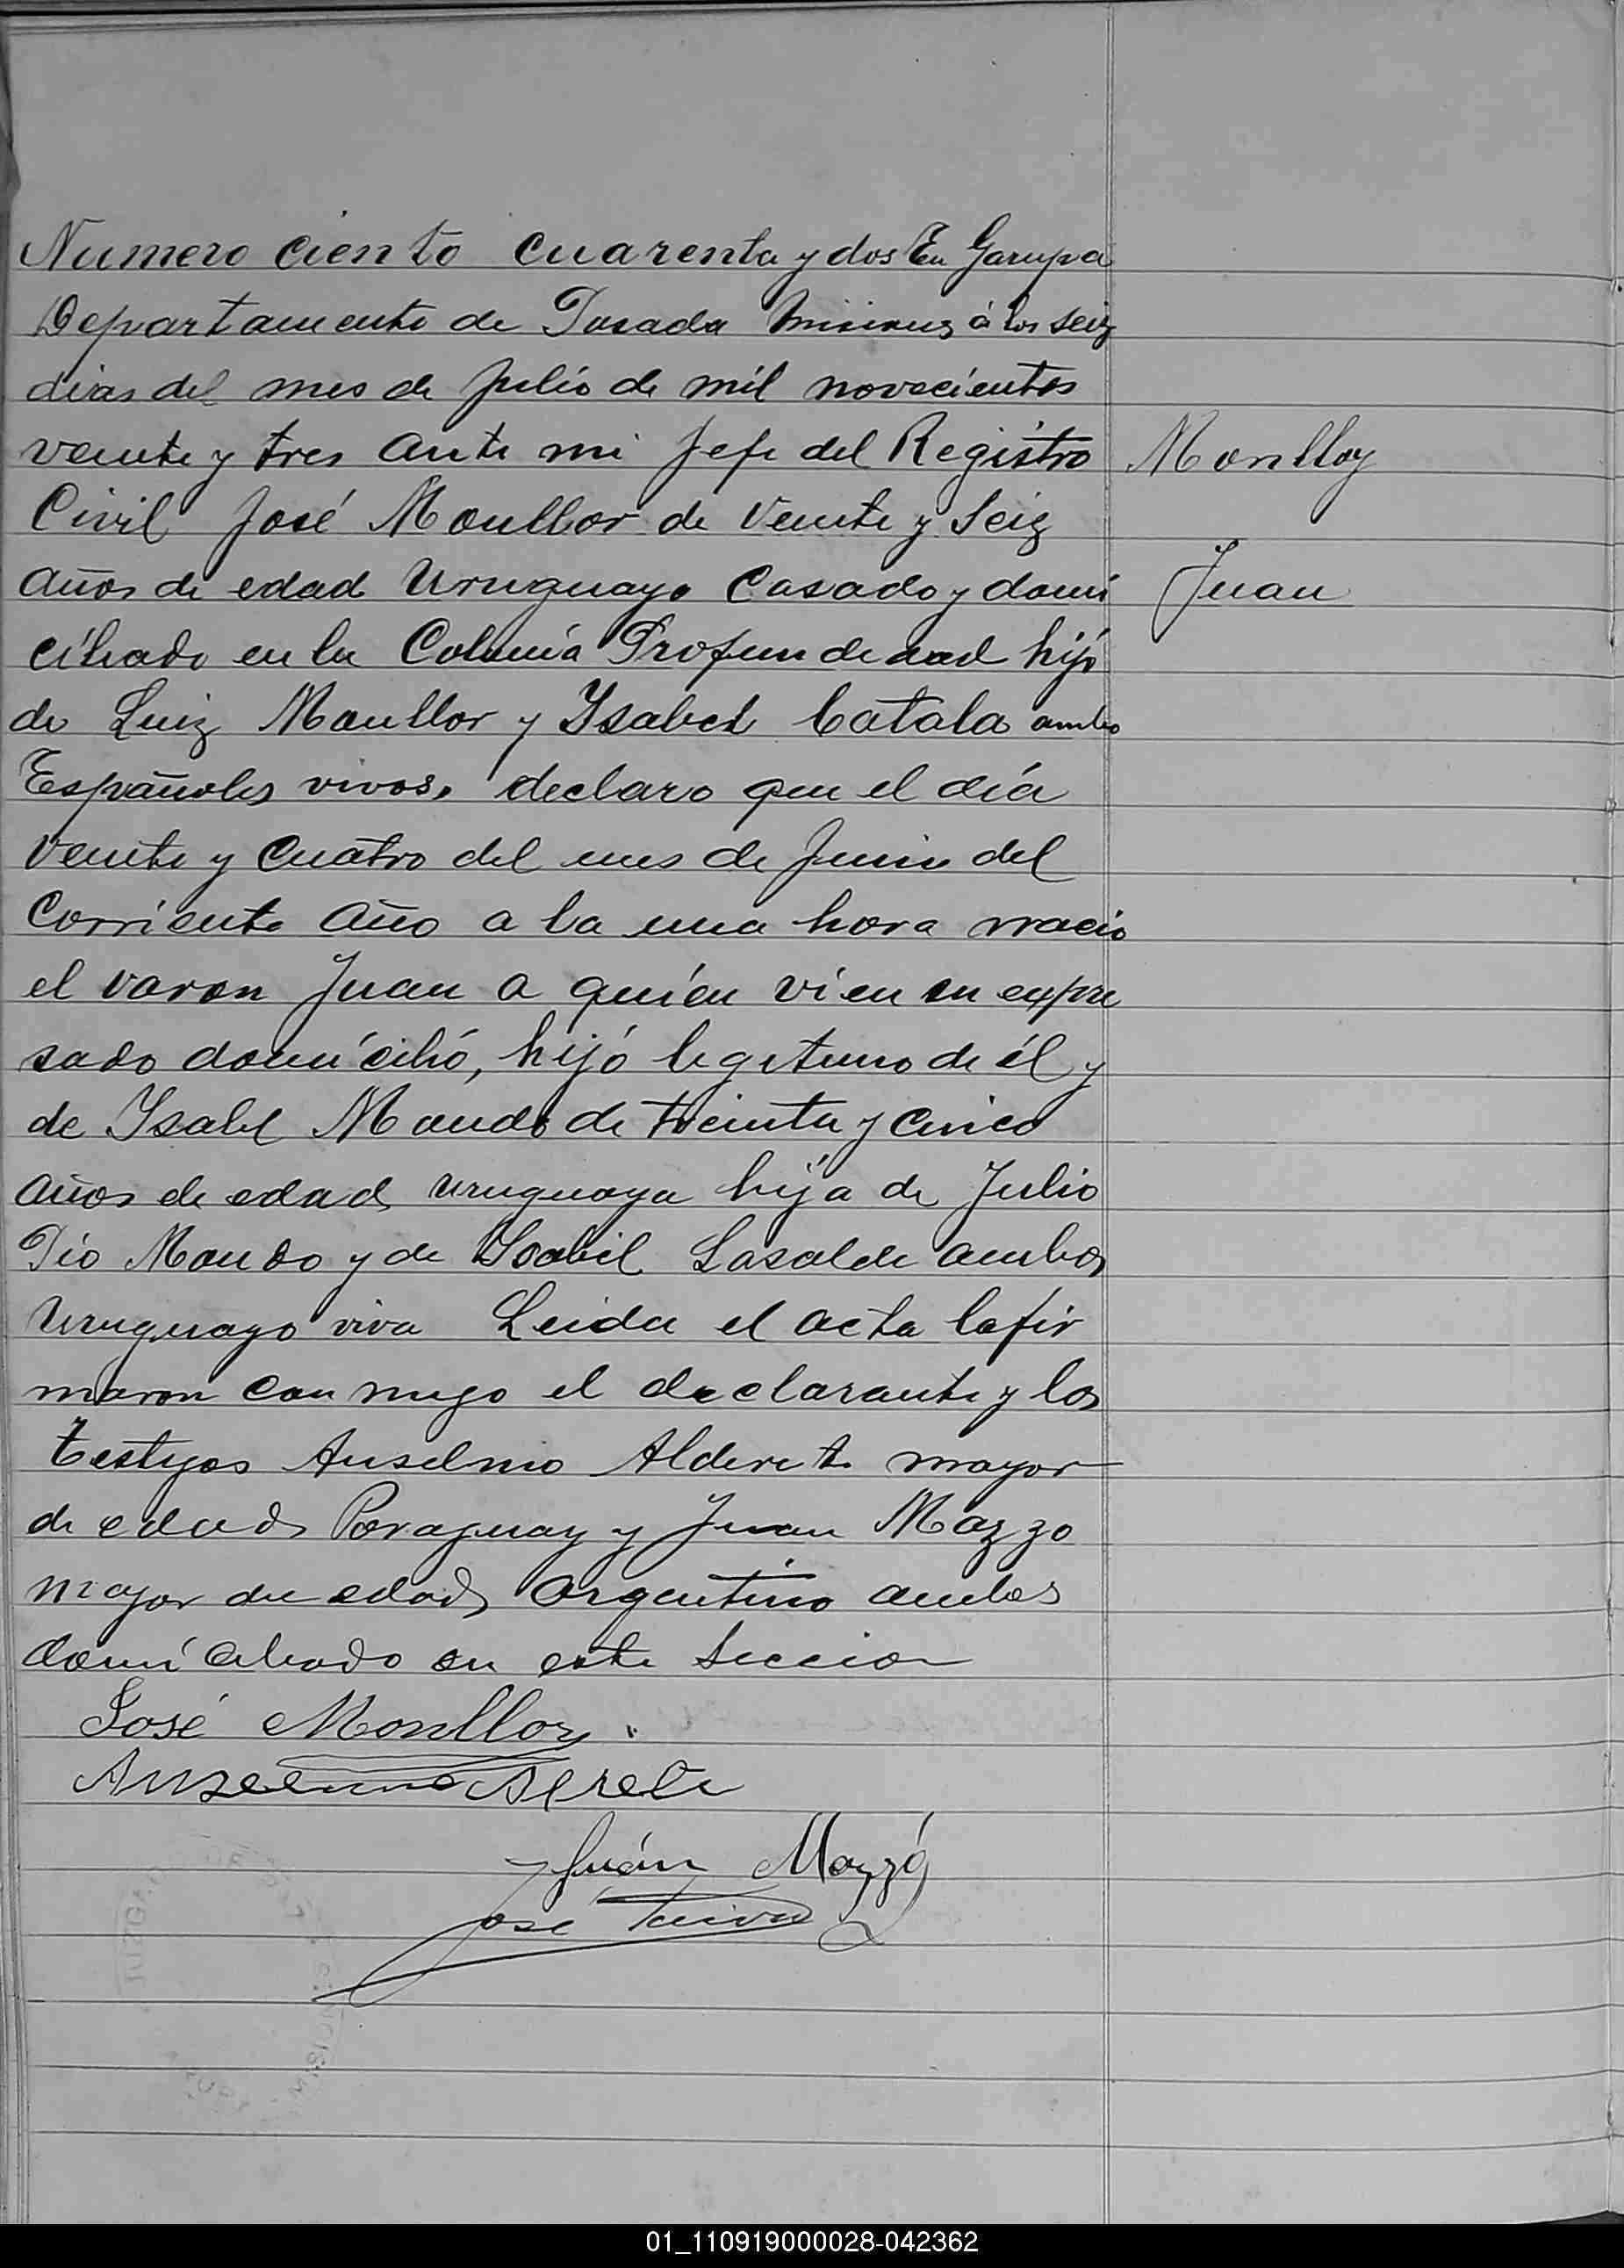 Numero ciento cuarenta y dos En Garupa
Departamento de Posada Misiones á los seiz
dias del mes de Julio de mil novecientos
veinte y tres ante mi Jefe del Registro
Civil José Monllor de veinte y seiz
años de edad Uruguayo Casado y domi
ciliado en la Colonia Profundedad hijo
de Luiz Monllor y Ysabel Catala ambo
Españoles vivos, declaro que el día
veinte y cuatro del mes de Junio del
Corriente año a la una hora nacio
el varon Juan a quien vi en su expre
sado domicilió, hijó legitimo de él y
de Ysabel Mando de treinta y cinco
años de edad uruguaya hija de Julio
Pio Mando y de Ysabil Lasalde ambos
Uruguayo viva Leida el acta lafir
maron con migo el declarante y los
testigos Anselmo Alderete mayor
de edad Paraguay y Juan Mazzo
mayor de edad argentino ambos
domiciliado en esta Seccion
José Monllor
Anselmo
Juán Mazzó
José
Monllor
Juan
01_110919000028-042362